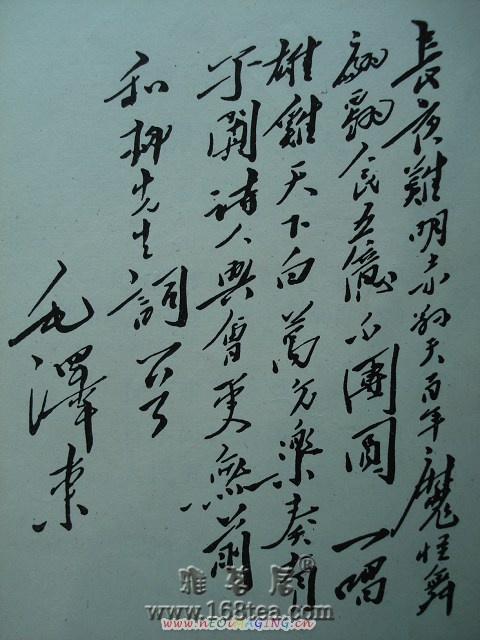 長夜難明赤縣天百年魔怪舞
翩躚人民五億不團圓 一唱
雄雞天下白萬方樂奏有
于闐詩人興會更無前
和柳先生詞一首
毛澤東
雅茗居®
www.168tea.com
www.nEOiMAGING.cn